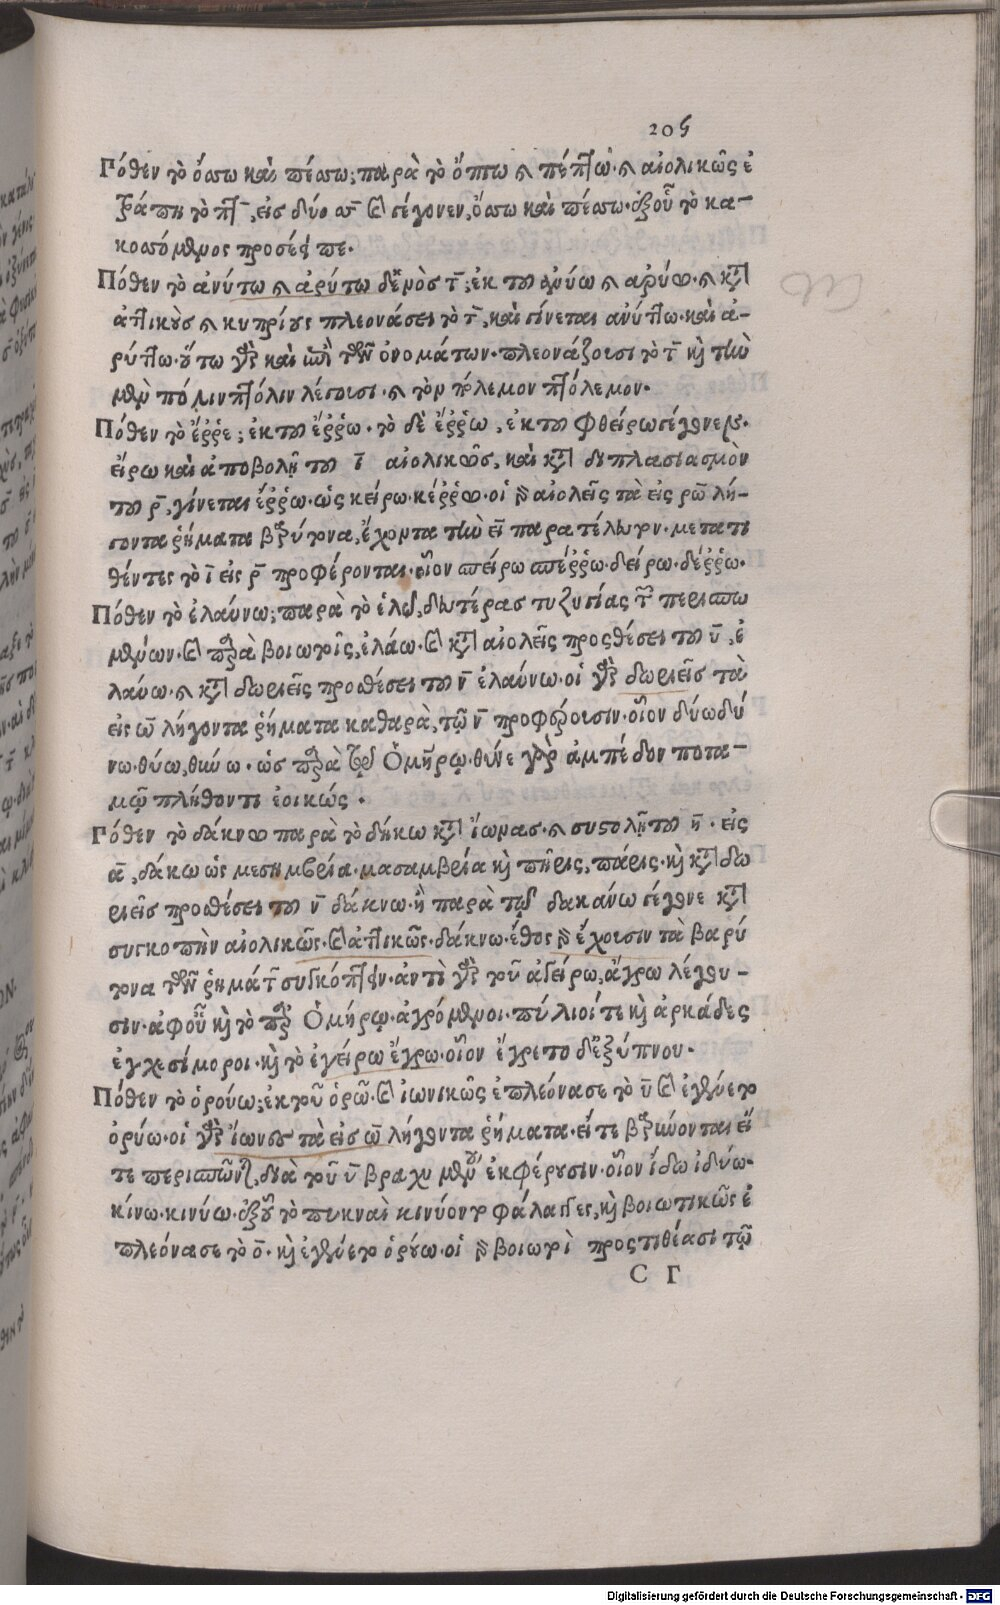 205
Πόθεν τὸ ὄσσω καὶ πέσσω; παρὰ τὸ ὄπτω καὶ πέπτω· καὶ αἰολικῶς ἐ
τράπη τὸ πτ, εἰς δύο σσ καὶ γέγονεν, ὄσσω καὶ πέσσω· ἐξ οὗ τὸ κα-
κοσσόμενος προσέειπε.
Πόθεν τὸ ἀνύτω καὶ ἀρύτω δεινὸς τ̄; ἐκ του ἀνύω καὶ ἀρύω· καὶ κατὰ
ἀττικοὺς καὶ κυπρίους πλεονάσει τὸ τ̄, καὶ γίνεται ἀνύττω· καὶ ἀ-
ρύττω· οὕτω γὰρ καὶ ἐπὶ τῶν ὀνομάτων· πλεονάζουσι τὸ τ̄ καὶ τὴν
μὲν πόλιν πτόλιν λέγουσι· καὶ τὸν πόλεμον πτόλεμον.
Πόθεν τὸ ἔῤῥε; ἐκ του ἔῤῥω· τὸ δὲ ἔῤῥω, ἐκ του φθείρω γέγονε
εἴρω καὶ ἀποβολῇ του ῑ αἰολικῶς, καὶ κατὰ διπλασιασμὸν
του ρ̄, γίνεται ἔῤῥω· ὡς κείρω· κέῤῥω· οἱ γὰρ αἰολεῖς τὰ εἰς ρω λή-
γοντα ῥήματα βαρύτονα, ἔχοντα τὴν ει παρατέλευτον· μετατι
θέντες τὸ ῑ εἰς ρ̄ προφέρονται· οἷον σπείρω σπέῤῥω· δείρω· δέῤῥω.
Πόθεν τὸ ἐλαύνω; παρὰ τὸ ἐλῶ, δευτέρας συζυγίας τῶν περισπω
μένων· καὶ παρὰ βοιωτοῖς, ἐλάω· καὶ κατὰ αἰολεῖς προσθέσει του ῡ, ἐ
λαύω· καὶ κατὰ δωριεῖς προσθέσει του ν̄ ἐλαύνω· οἱ γὰρ δωριεῖς τὰ
εἰς ω̄ λήγοντα ῥήματα καθαρὰ, τῷ ν̄ προφέρουσιν· οἷον δύω δύ
νω· θύω, θύνω· ὡς παρὰ τῷ Ὁμήρῳ· θῦνε γὰρ ἀμπέδον ποτα-
μῷ πλήθοντι ἐοικώς.
Πόθεν τὸ δάκνω παρὰ τὸ δήκω κατὰ ἴωνας· καὶ συστολῇ του η̄· εἰς
ᾱ, δάκω ὡς μεσημβρία· μασαμβρία καὶ πῆρις, πάρις· καὶ κατὰ δω
ριεῖς προσθέσει του ν̄ δάκνω· ἢ παρὰ τὸ δακάνω γέγονε κατὰ
συγκοπὴν αἰολικῶς· καὶ ἀττικῶς· δάκνω· ἔθος γὰρ ἔχουσιν τὰ βαρύ
τονα τῶν ῥημάτων συγκόπτειν· ἀντὶ γὰρ τοῦ ἀγείρω, ἄγρω λέγου-
σιν· ἀφ' οὗ καὶ τὸ παρ' Ὁμήρῳ· ἀγρόμενοι· πύλιοί τε καὶ ἀρκάδες
ἐγχεσίμοροι· καὶ τὸ ἐγείρω ἔγρω· οἷον ἔγρετο δ' ἐξ ὕπνου.
Πόθεν τὸ ὀρούω; ἐκ τοῦ ὀρῶ· καὶ ἰωνικῶς ἐπλεόνασε τὸ ῡ καὶ ἐγένετο
ὀρύω· οἱ γὰρ ἴωνες τὰ εἰς ω̄ λήγοντα ῥήματα· εἴτε βαρύνονται εἴ
τε περισπῶνται, διὰ τοῦ ῡ βραχυ μένου ἐκφέρουσιν· οἷον ἴδω ἰδύω·
κίνω· κινύω· ἐξ οὗ τὸ πυκναὶ κινύοντο φάλαγγες, καὶ βοιωτικῶς ἐ
πλεόνασε τὸ ο̄· καὶ ἐγένετο ὀρούω· οἱ γὰρ βοιωτοὶ προστιθέασι τῷ
C Γ
Digitalisierung gefördert durch die Deutsche Forschungsgemeinschaft - DFG